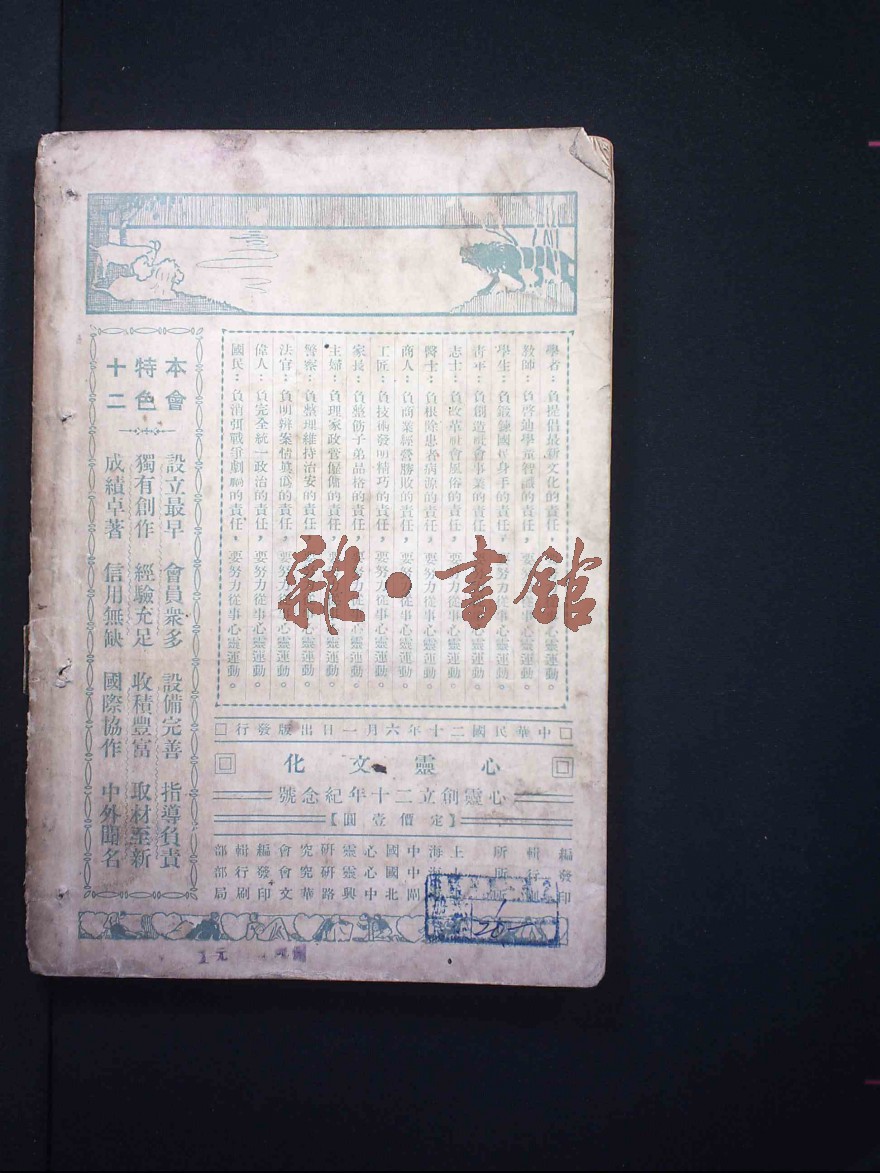 學者：負提倡最新文化的責任，要努力從事心靈運動。
教師：負啓迪學童智識的責任，要努力從事心靈運動。
學生：負鍛鍊國民身手的責任，要努力從事心靈運動。
青年：負創造社會事業的責任，要努力從事心靈運動。
志士：負改革社會風俗的責任，要努力從事心靈運動。
醫士：負根除患者病源的責任，要努力從事心靈運動。
商人：負商業經營勝敗的責任，要努力從事心靈運動。
工匠：負技術發明精巧的責任，要努力從事心靈運動。
家長：負整飭子弟品格的責任，要努力從事心靈運動。
主婦：負理家政管僱傭的責任，要努力從事心靈運動。
警察：負整理維持治安的責任，要努力從事心靈運動。
法官：負明辨案情眞僞的責任，要努力從事心靈運動。
偉人：負完全統一政治的責任，要努力從事心靈運動。
國民：負消弭戰爭劇禍的責任，要努力從事心靈運動。
本會
特色
十二
設立最早 會員衆多 設備完善 指導負責
獨有創作 經驗充足 收積豐富 取材至新
成績卓著 信用無缺 國際協作 中外聞名
中華民國二十年六月一日出版發行
心靈文化
心靈創立二十年紀念號
【定價壹圓】
編輯所 上海中國心靈研究會編輯部
發行所 中國心靈研究會發行部
印刷所 閘北中興路華文印刷局
雜·書館
1元